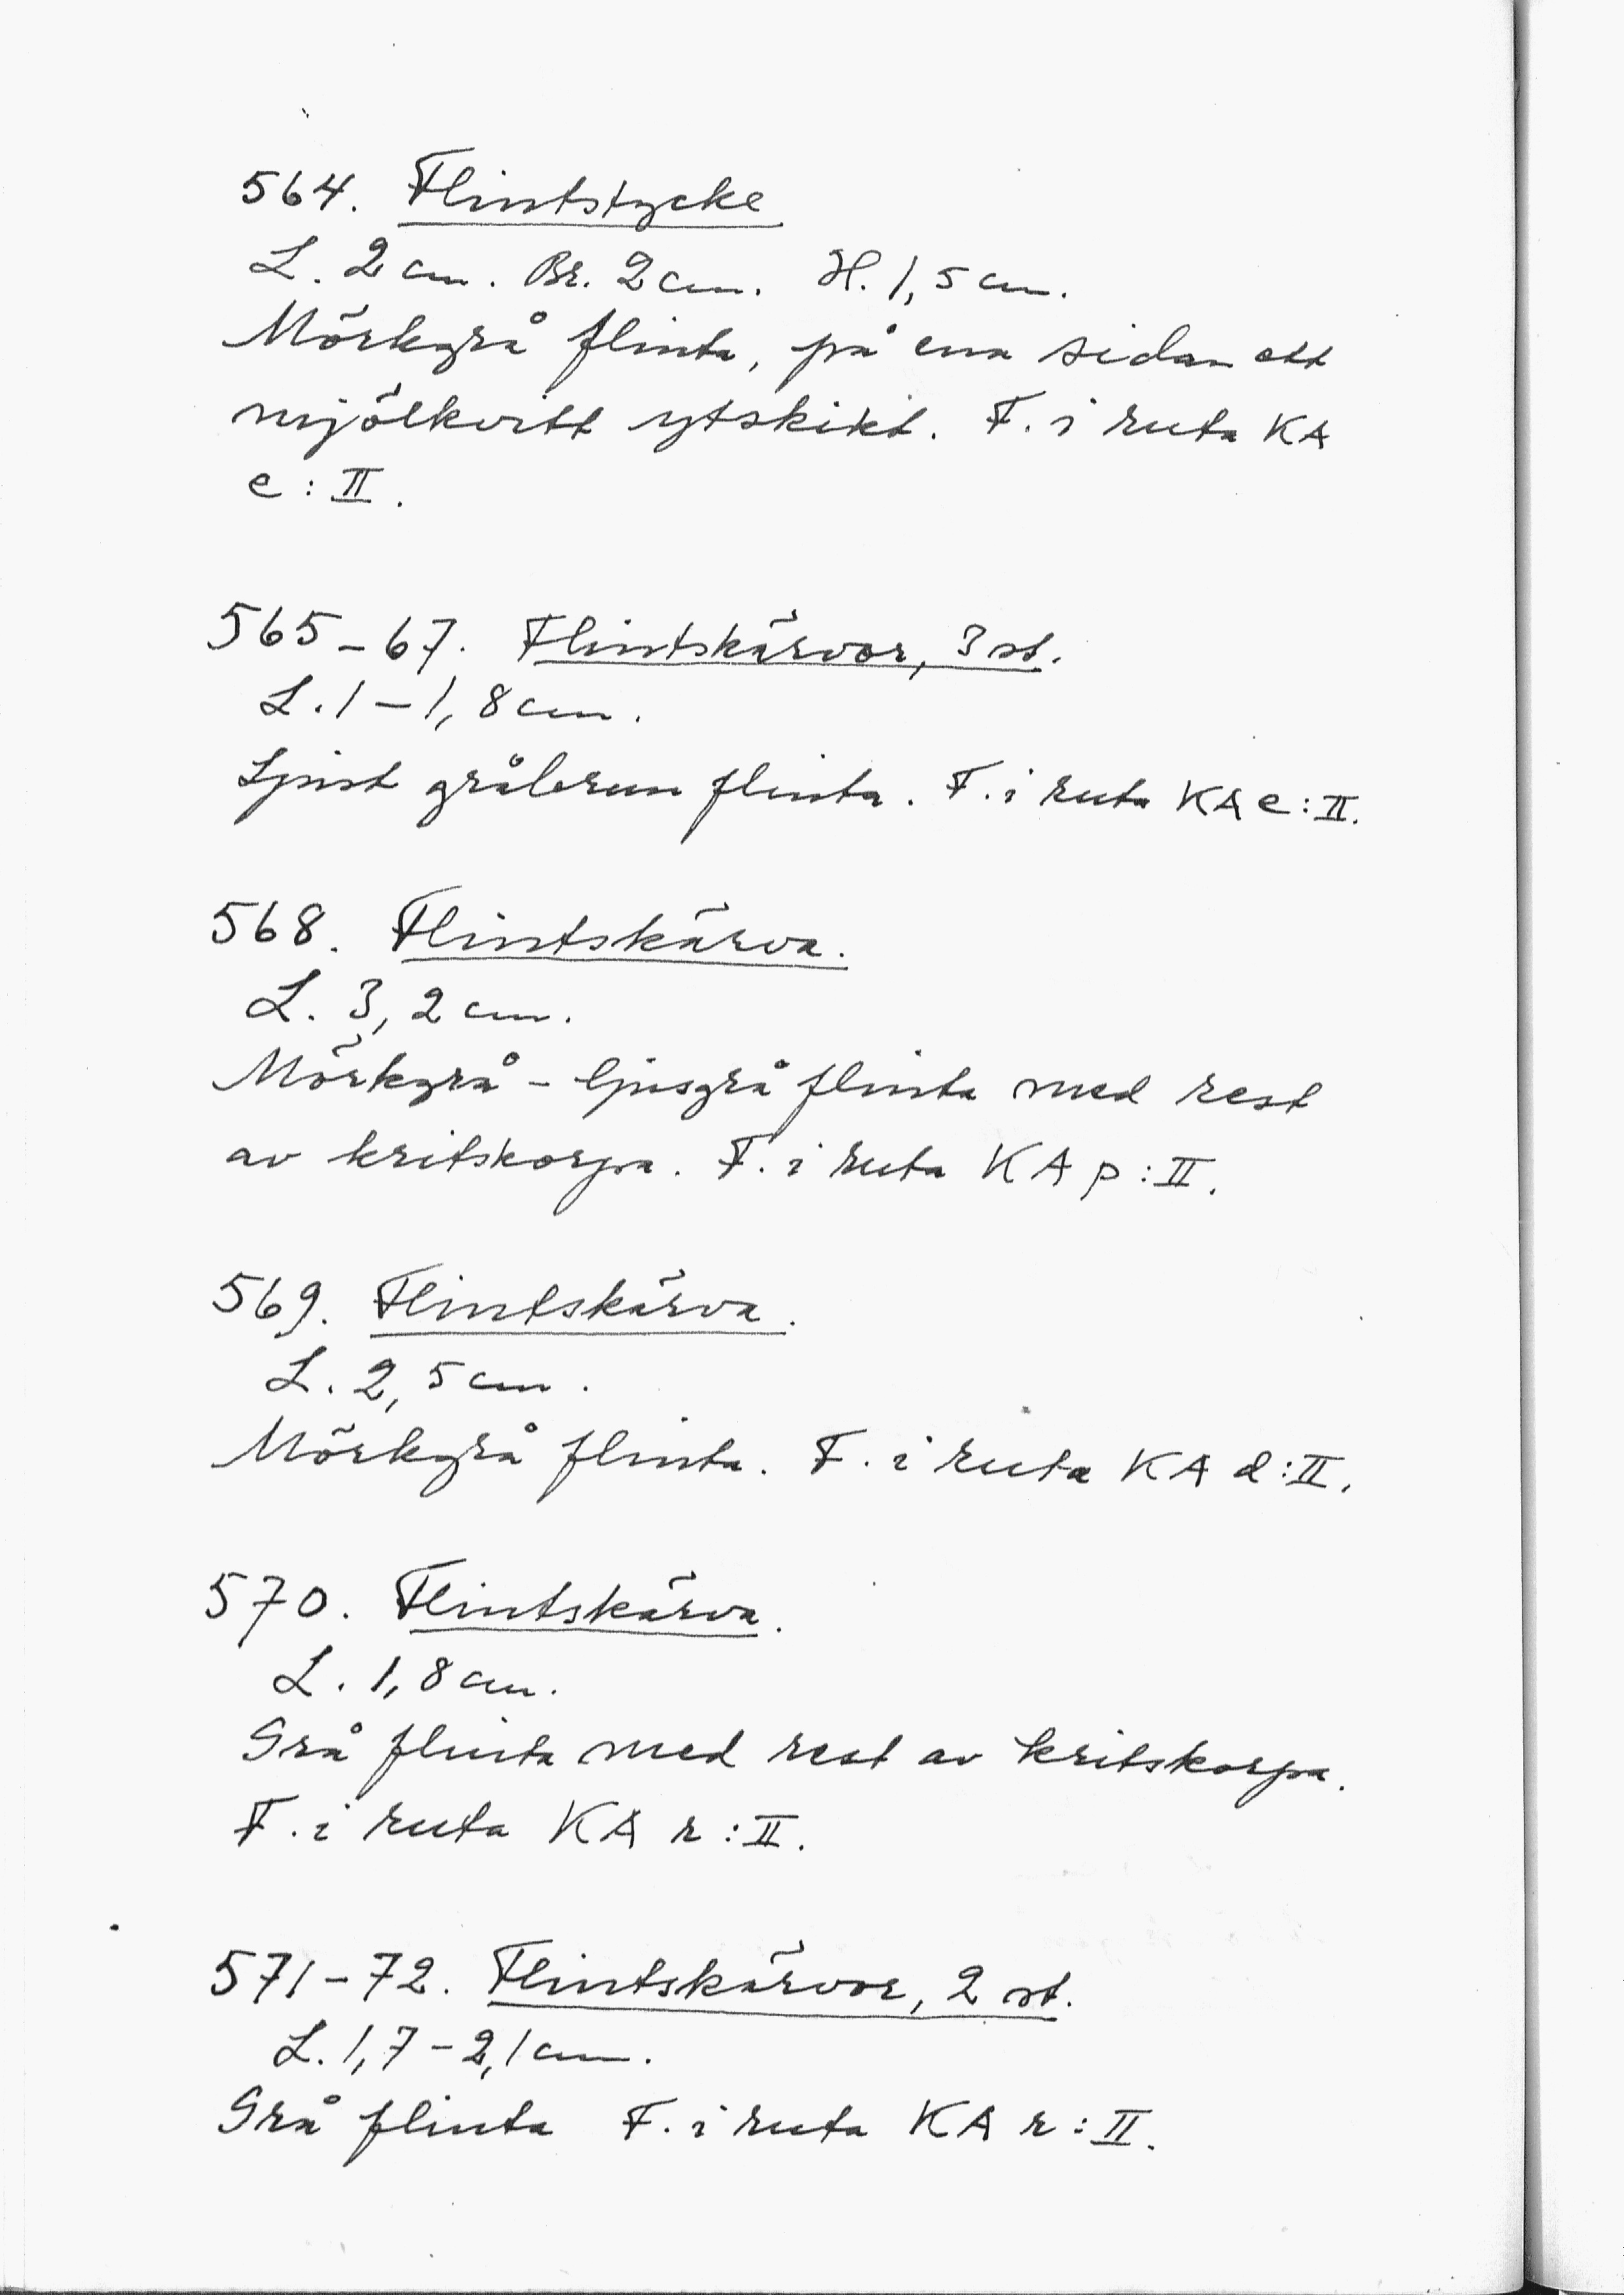 564. Flintstycke
L. 2 cm. Br. 2 cm. H. 1,5 cm.
Mörkgrå flinta, på ena sidan ett
mjölkvitt ytskikt. F. i ruta KA
e : II.
565-67. Flintskärvor, 3 st.
L. 1-1,8 cm.
Ljust gråbrun flinta. F. i ruta KA e : II.
568. Flintskärva.
L. 3,2 cm.
Mörkgrå - ljusgrå flinta med rest
av kritskorpa. F. i ruta KA p : II.
569. Flintskärva.
L. 2,5 cm.
Mörkgrå flinta. F. i ruta KA d : II.
570. Flintskärva.
L. 1,8 cm.
Grå flinta med rest av kritskorpa.
F. i ruta KA r : II.
571-72. Flintskärvor, 2 st.
L. 1,7-2,1 cm.
Grå flinta F. i ruta KA r : II.